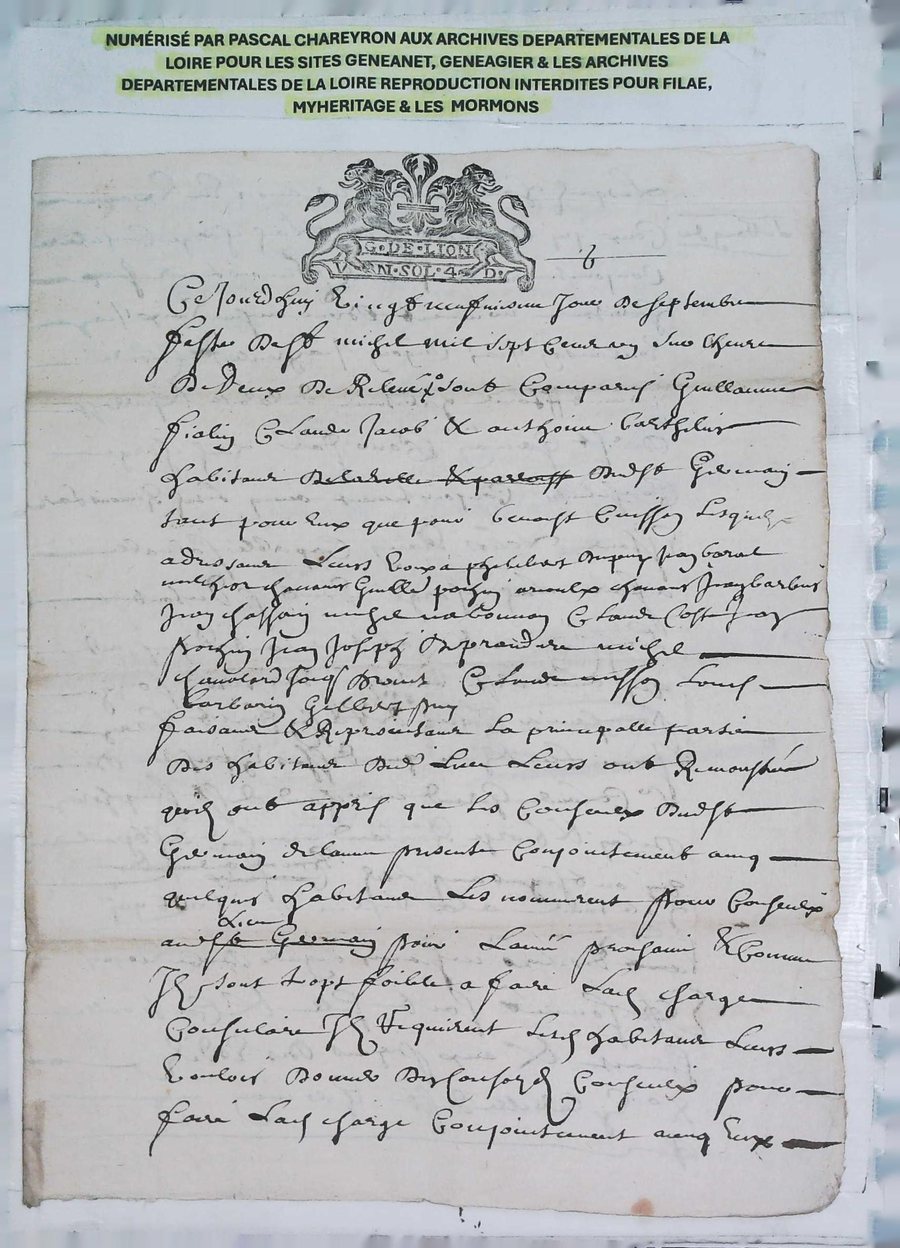 NUMÉRISÉ PAR PASCAL CHAREYRON AUX ARCHIVES DEPARTEMENTALES DE LA
LOIRE POUR LES SITES GENEANET, GENEAGIER & LES ARCHIVES
DEPARTEMENTALES DE LA LOIRE REPRODUCTION INTERDITES POUR FILAE,
MYHERITAGE & LES MORMONS
G·DE·LION
V N·SOL·4·D·
6
Ce Jourdhuy Vingt neufviesme Jour de septembre
feste de st michel mil sept cent un sur lheure
de deux de Relevé sont Comparus Guillaume
fialin Claude Jacob & anthoine barthelin
habitans dudst Germain
tant pour Eux que pour benoist Cuisson lesquels
adressant Leurs Voix a philibert dupuy Jean
Guille pochin chavans Jean barbins
Jean chassain michel Claude Jean
pochin Jean Joseph michel
Claude Louis
barbarin Gilbert puy
faisant & Representant La principalle partie
des habitans dud Lieu Leurs ont Remonstré
quils ont appris que les Consculx dudst
Germain de lannee presente Conjointement avecq
quelques habitans Les nommerent pour Consculx
Lieu
audst Germain pour Lannee prochaine & Comme
Ils sont tropt foible a faire Lad charge
Consulaire Ils Requirent Lesd habitans Leurs
Vouloir donner des Consculx pour
faire Lad charge Conjointement avecq Eux